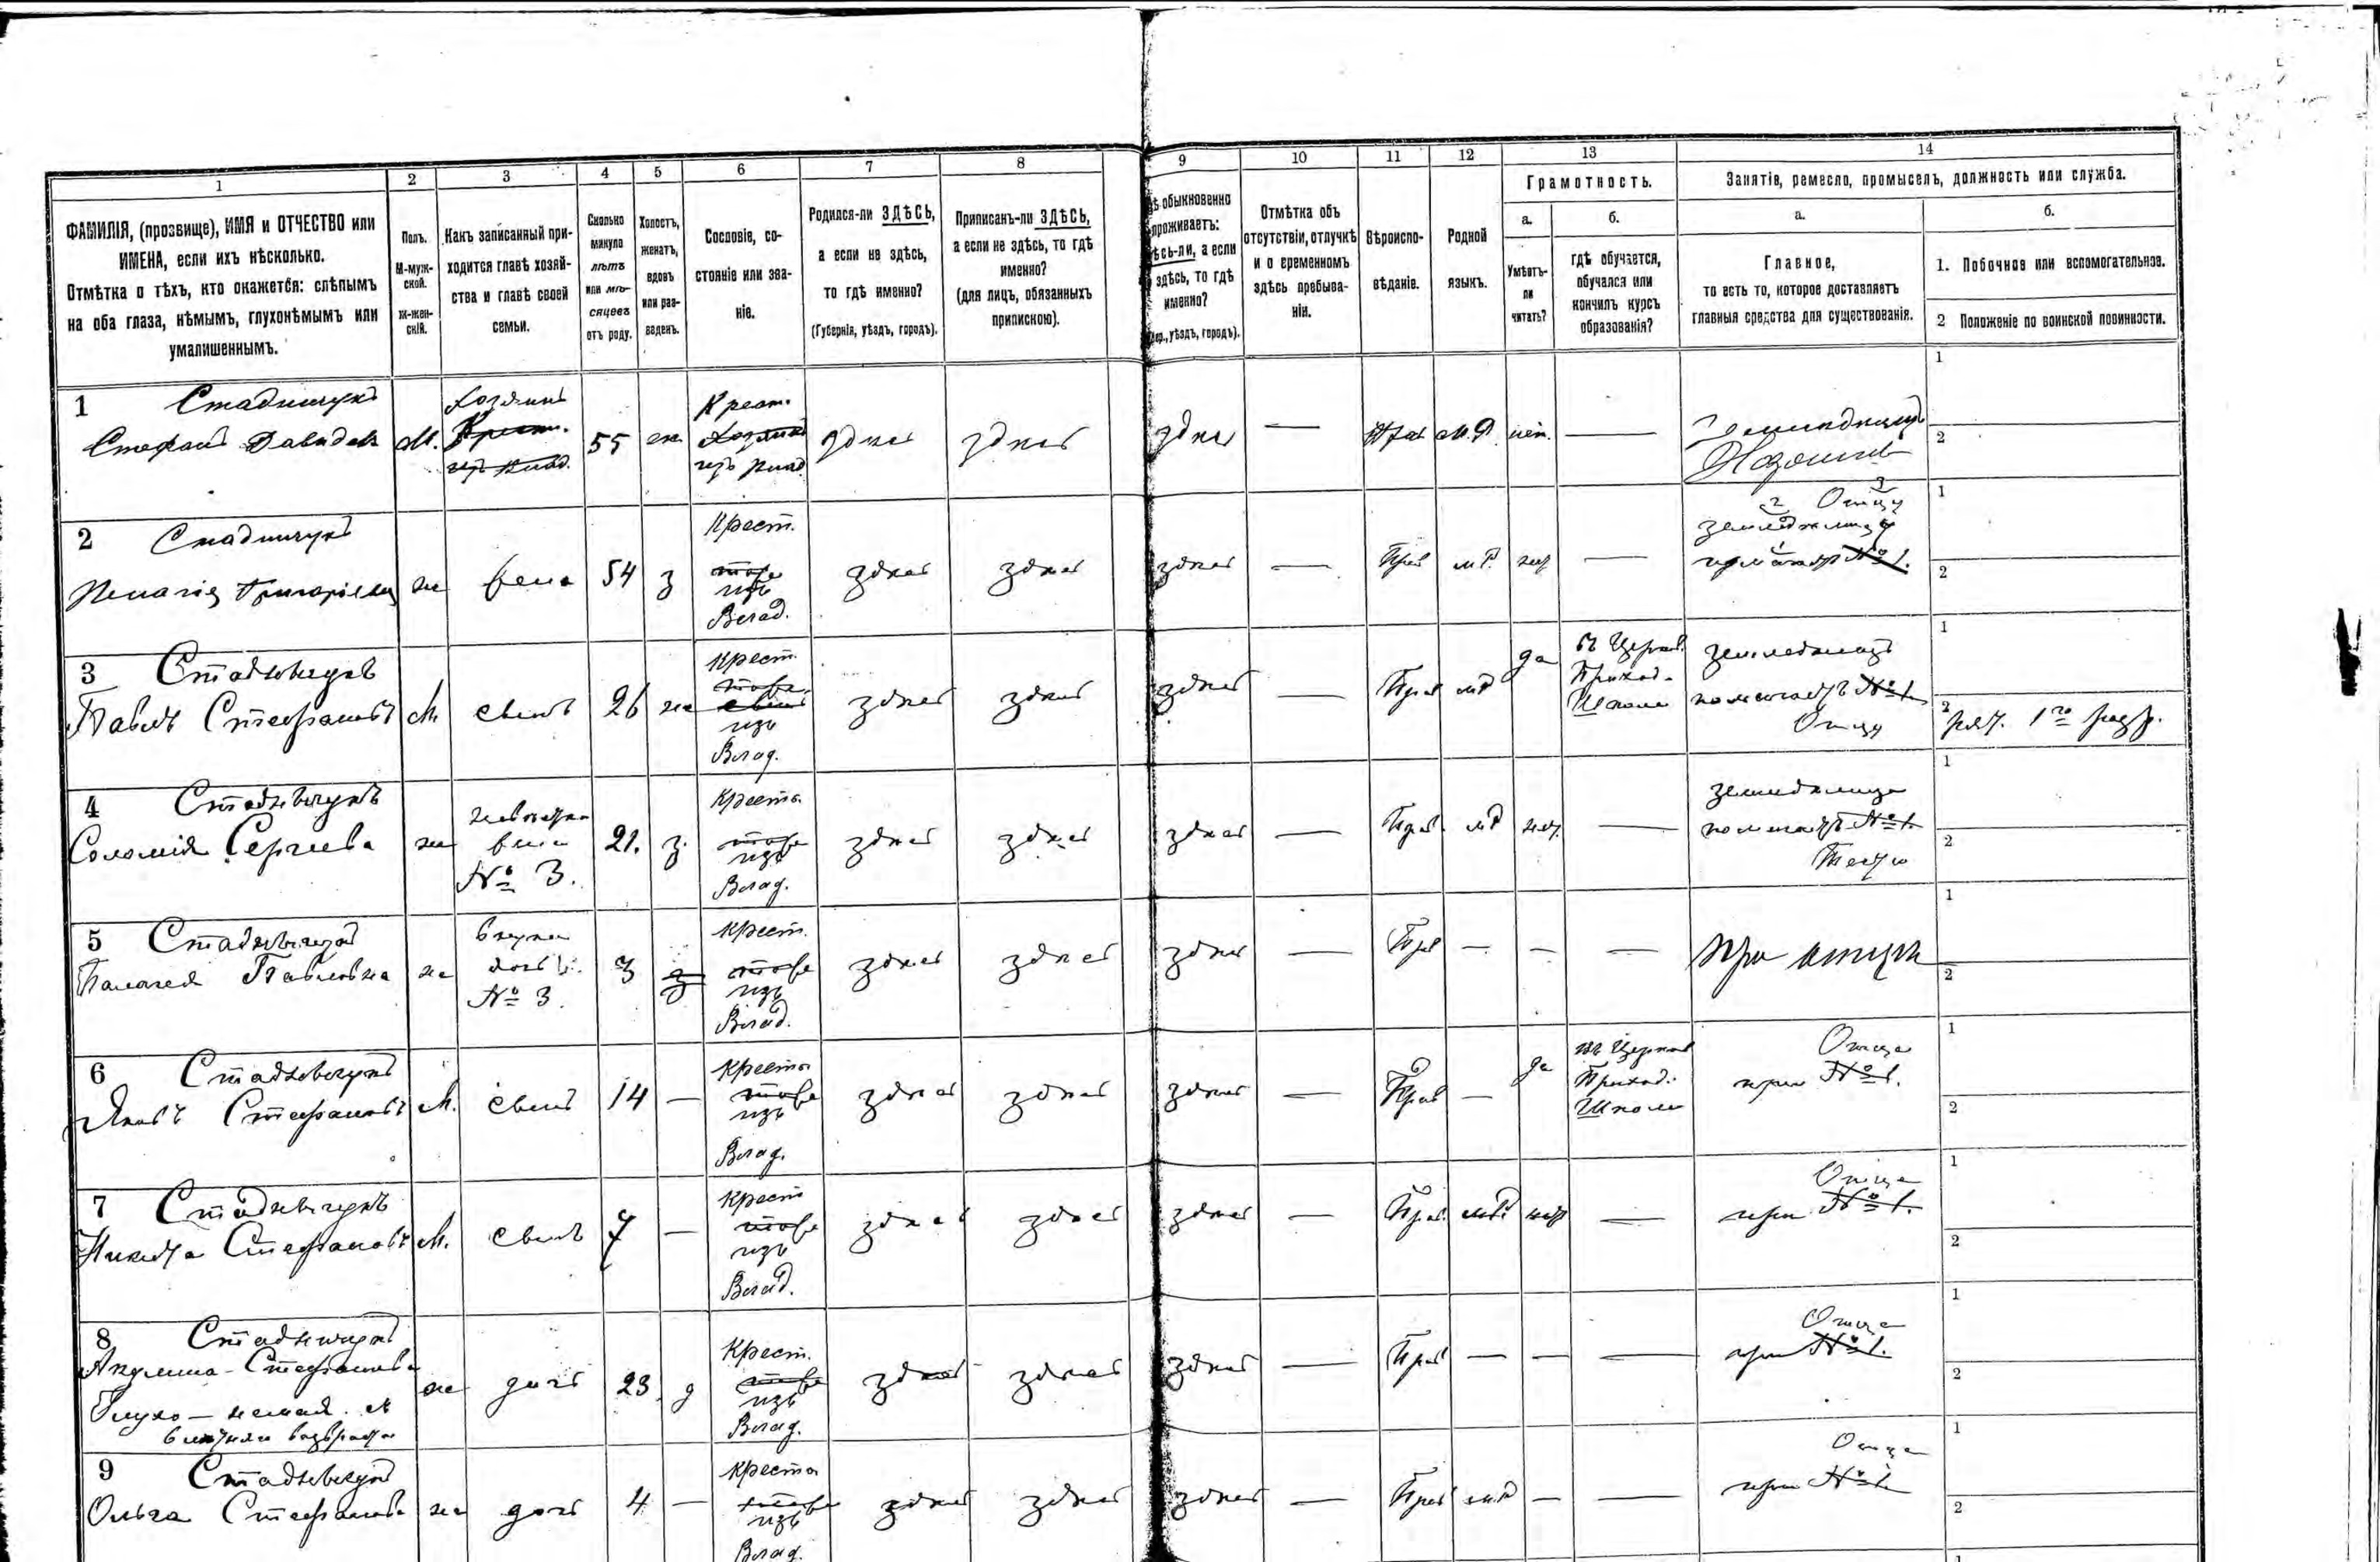 1
2
3
4
5
6
7
8
9
10
11
12
13
14
ФАМИЛІЯ, (прозвище), ИМЯ и ОТЧЕСТВО или
ИМЕНА, если ихъ нѣсколько.
Отмѣтка о тѣхъ, кто окажется: слѣпымъ
на оба глаза, нѣмымъ, глухонѣмымъ или
умалишеннымъ.
Полъ.
М-муж-
ской.
Ж-жен-
скій.
Какъ записанный при-
ходится главѣ хозяй-
ства и главѣ своей
семьи.
Сколько
минуло
лѣтъ
или мѣ-
сяцевъ
отъ роду.
Холостъ,
женатъ,
вдовъ
или раз-
веденъ.
Сословіе, со-
стояніе или зва-
ніе.
Родился-ли ЗДѢСЬ,
а если не здѣсь,
то гдѣ именно?
(Губернія, уѣздъ, городъ).
Приписанъ-ли ЗДѢСЬ,
а если не здѣсь, то гдѣ
именно?
(для лицъ, обязанныхъ
припискою).
обыкновенно
проживаетъ:
а если
здѣсь, то гдѣ
именно?
уѣздъ, городъ).
Отмѣтка объ
отсутствіи, отлучкѣ
и о временномъ
здѣсь пребыва-
ніи.
Вѣроиспо-
вѣданіе.
Родной
языкъ.
Грамотность.
а.
Умѣетъ-
ли
читать?
б.
гдѣ обучается,
обучался или
кончилъ курсъ
образованія?
Занятіе, ремесло, промыселъ, должность или служба.
а.
Главное,
то есть то, которое доставляетъ
главныя средства для существованія.
б.
1. Побочное или вспомогательное.
2 Положеніе по воинской повинности.
1 Стадничукъ
Стефанъ Давидовъ М. Хозяинъ 55 жен. Крест. здесь здесь здесь — Прав. М.Р. нет. —
изъ влад.
1
2
2 Стадничукъ
Пелагія Григоріева ж жена 54 з Крест. здесь здесь здесь — Прав. м.Р. нет —
изъ
Влад.
1
2
3 Стадничукъ
Павелъ Стефановъ М. сынъ 26 же Крест. здесь здесь здесь — Прав мР да
изъ
Влад.
въ Церков.
Приход.
Школе
земледелецъ
помогаетъ № 1.
Отцу
1
2 рат. 1го разр.
4 Стадничукъ
Соломія Сергеева ж невестка
жена
№ 3. 21. з. Кресть. здесь здесь здесь — Прав. мР нет. —
изъ
Влад.
помогаетъ № 1.
1
2
5 Стадничукъ
Палагея Павловна ж внука
дочь
№ 3. 3 Крест. здесь здесь здесь — Прав — — — при отцѣ
изъ
Влад.
1
2
6 Стадничукъ
Яковъ Стефановъ М. сынъ 14 — Кресть здесь здесь здесь — Прав — да
изъ
Влад.
въ Церков
Приход.
Школе
Отце
при № 1.
1
2
7 Стадничукъ
Никита Стефановъ М. сынъ 7 — Крест здесь здесь здесь — Прав. мР нет —
изъ
Влад.
Отце
при № 1.
1
2
8 Стадничукъ
Акулина Стефанова
Глухо-немая. съ ж дочь 23 д Крест. здесь здесь здесь — Прав — — —
изъ
Влад.
возраста
Отце
при № 1.
1
2
9 Стадничукъ
Ольга Стефанова ж дочь 4 — Кресть здесь здесь здесь — Прав м.Р — —
изъ
Влад.
Отце
при № 1.
1
2
1